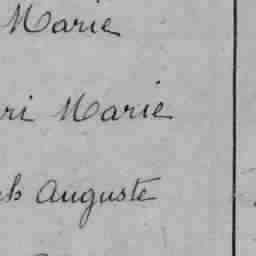 Marie
ri Marie
Auguste